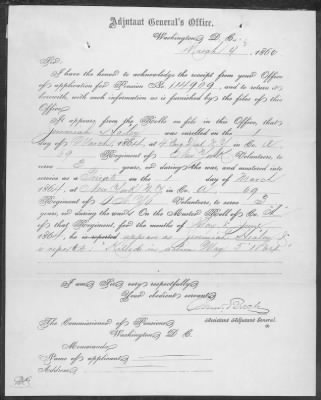 Adjutant General's Office,
Washington, D. C.
4th 186
Sir:
I have the honor to acknowledge the receipt from your Office
of application for Pension No. 14909, and to return it
herewith, with such information as is furnished by the files of this
Office.
It appears from the Rolls on file in this Office, that
Jeremiah was enrolled on the 1 day
of March, 1864, at N.Y. in Co. A
69 Regiment of New York Volunteers, to
serve 3 years, or during the war, and mustered into
service as a Private on the day of March
1864, at New York N.Y. in Co. A, 69
Regiment of N.Y. Volunteers, to serve 3
years, or during the war. On the Muster Roll of Co. A
of that Regiment, for the months of May & June,
1864, he is reported
reported Killed in action May 5" 1864
I am, Sir, very respectfully,
Your obedient servant,
Assistant Adjutant General.
The Commissioner of Pensions,
Washington, D. C.
Memoranda:
Name of applicant,
Address,